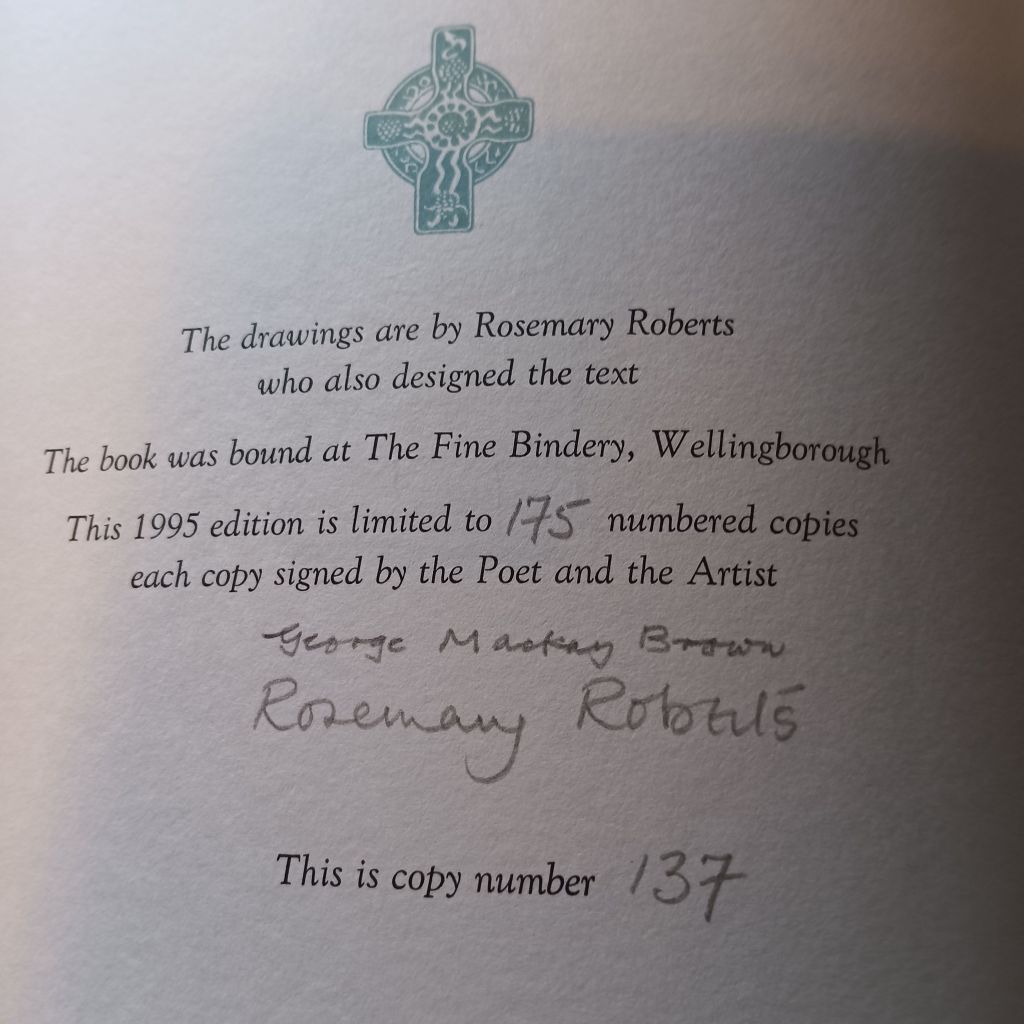 The drawings are by Rosemary Roberts
who also designed the text
The book was bound at The Fine Bindery, Wellingborough
This 1995 edition is limited to 175 numbered copies
each copy signed by the Poet and the Artist
George Mackay Brown
Rosemary Roberts
This is copy number 137